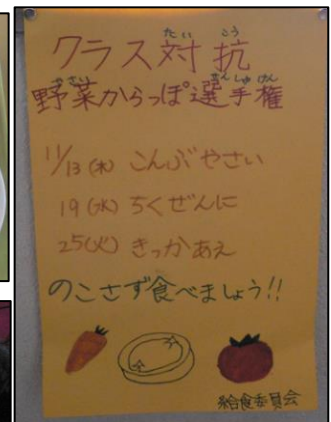 たい こう
クラス対抗
やさい せんしゅけん
野菜からっぽ選手権
11/13(木) こんぶやさい
19(水) ちくぜんに
25(火) きっかあえ
のこさず食べましょう!!
給食委員会